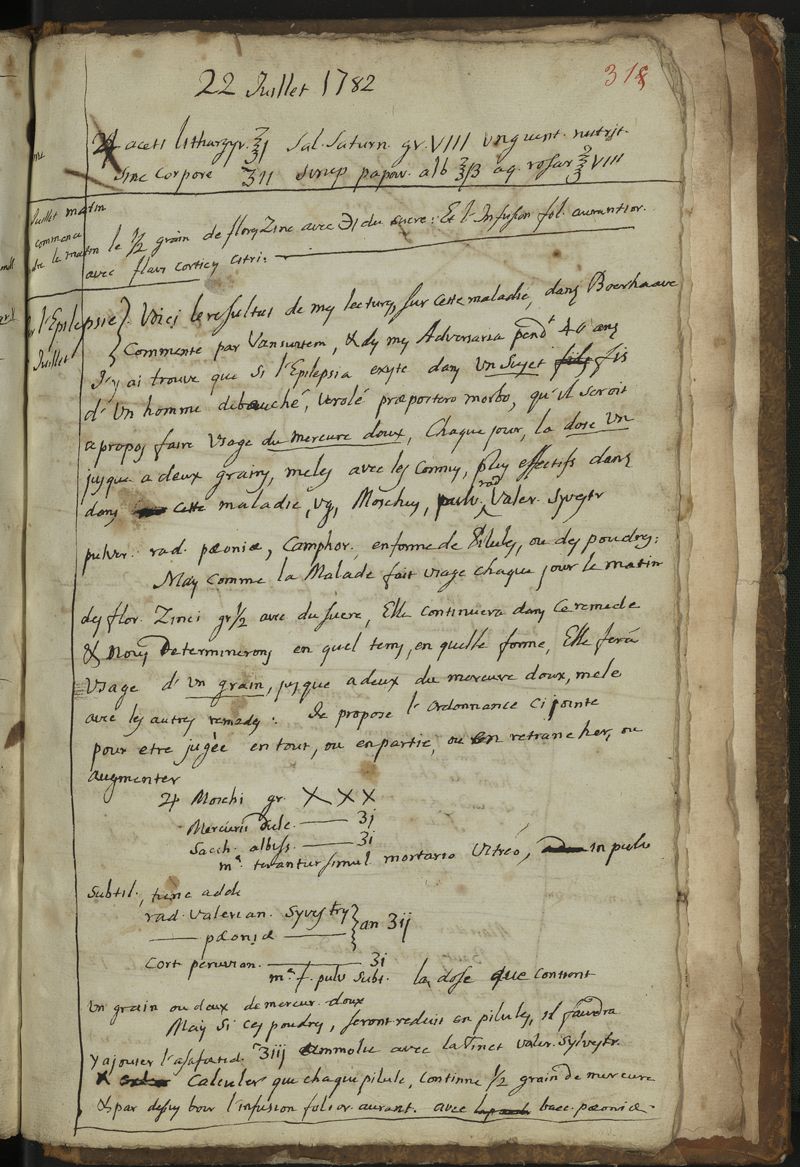 318
22 Juillet 1782
♃ aceti lithargyr. ℥j Sal. Saturn gr. VIII unguent. nutrit.
sine corpore ℥II sirup papav. alb ℥jβ aq. rosar ℥VIII
Juillet matin
commence
le matin le 1/2 grain de flory Zinc avec ℈i du sucre: Et l'Infusion fol. aurantior.
avec flavi corticy citri.
l'Epilepsie } Voicj le resultat de mes lectures sur cette maladie, dans Boerhaave
Juillet } Commenté par Vanswieten, & dy my Adversaria pend.t 40 ans
J'y ai trouvé que si l'Epilepsia existe dans un sujet fils
d'un homme debauché, verolé præpostero morbo, qu'il seroit
a propos faire usage du mercure doux, Chaque jour, la dose un
jusque a deux grains, meles avec les connus, plus effectifs dans
dans cette maladie, vg, Moschus, pulv. rad Valer. sylvestr
pulver. rad. pæoniæ, Camphor. en forme de Pilules, ou des poudres:
Mais comme la Malade fait usage chaque jour le matin
des flor. Zinci gr 1/2 avec du sucre, Elle continuera dans ce remede
& nous Determinerons en quel tems, en quelle forme, Elle fera
usage d'un grain, jusque a deux du mercure doux, mele
avec les autres remedes: Je propose l'ordonnance ci jointe
pour etre jugée en tout, ou en partie, ou en retrancher, ou
augmenter
♃ Moschi gr. XXX
Mercurii dulc. — ʒj
Sacch. albiss. — ʒi
m.a terantur simul mortario vitreo, in pulv
subtil., tunc adde
rad. Valerian. sylvestry } an ʒij
— pæoniæ — }
Cort peruvian. — ʒi
m.a f. pulv subt. la dose que contient
un grain ou deux de mercur. doux
Mais si ces poudres, seront reduit en pilules, il faudra
y ajouter l'assafœtid. ʒiij ammolie avec la Tinct valer. sylvestr.
& Calculer que chaque pilule, contienne 1/2 grain de mercure
& par dessus boir l'infusion folior. aurant. avec bacc. pæoniæ.